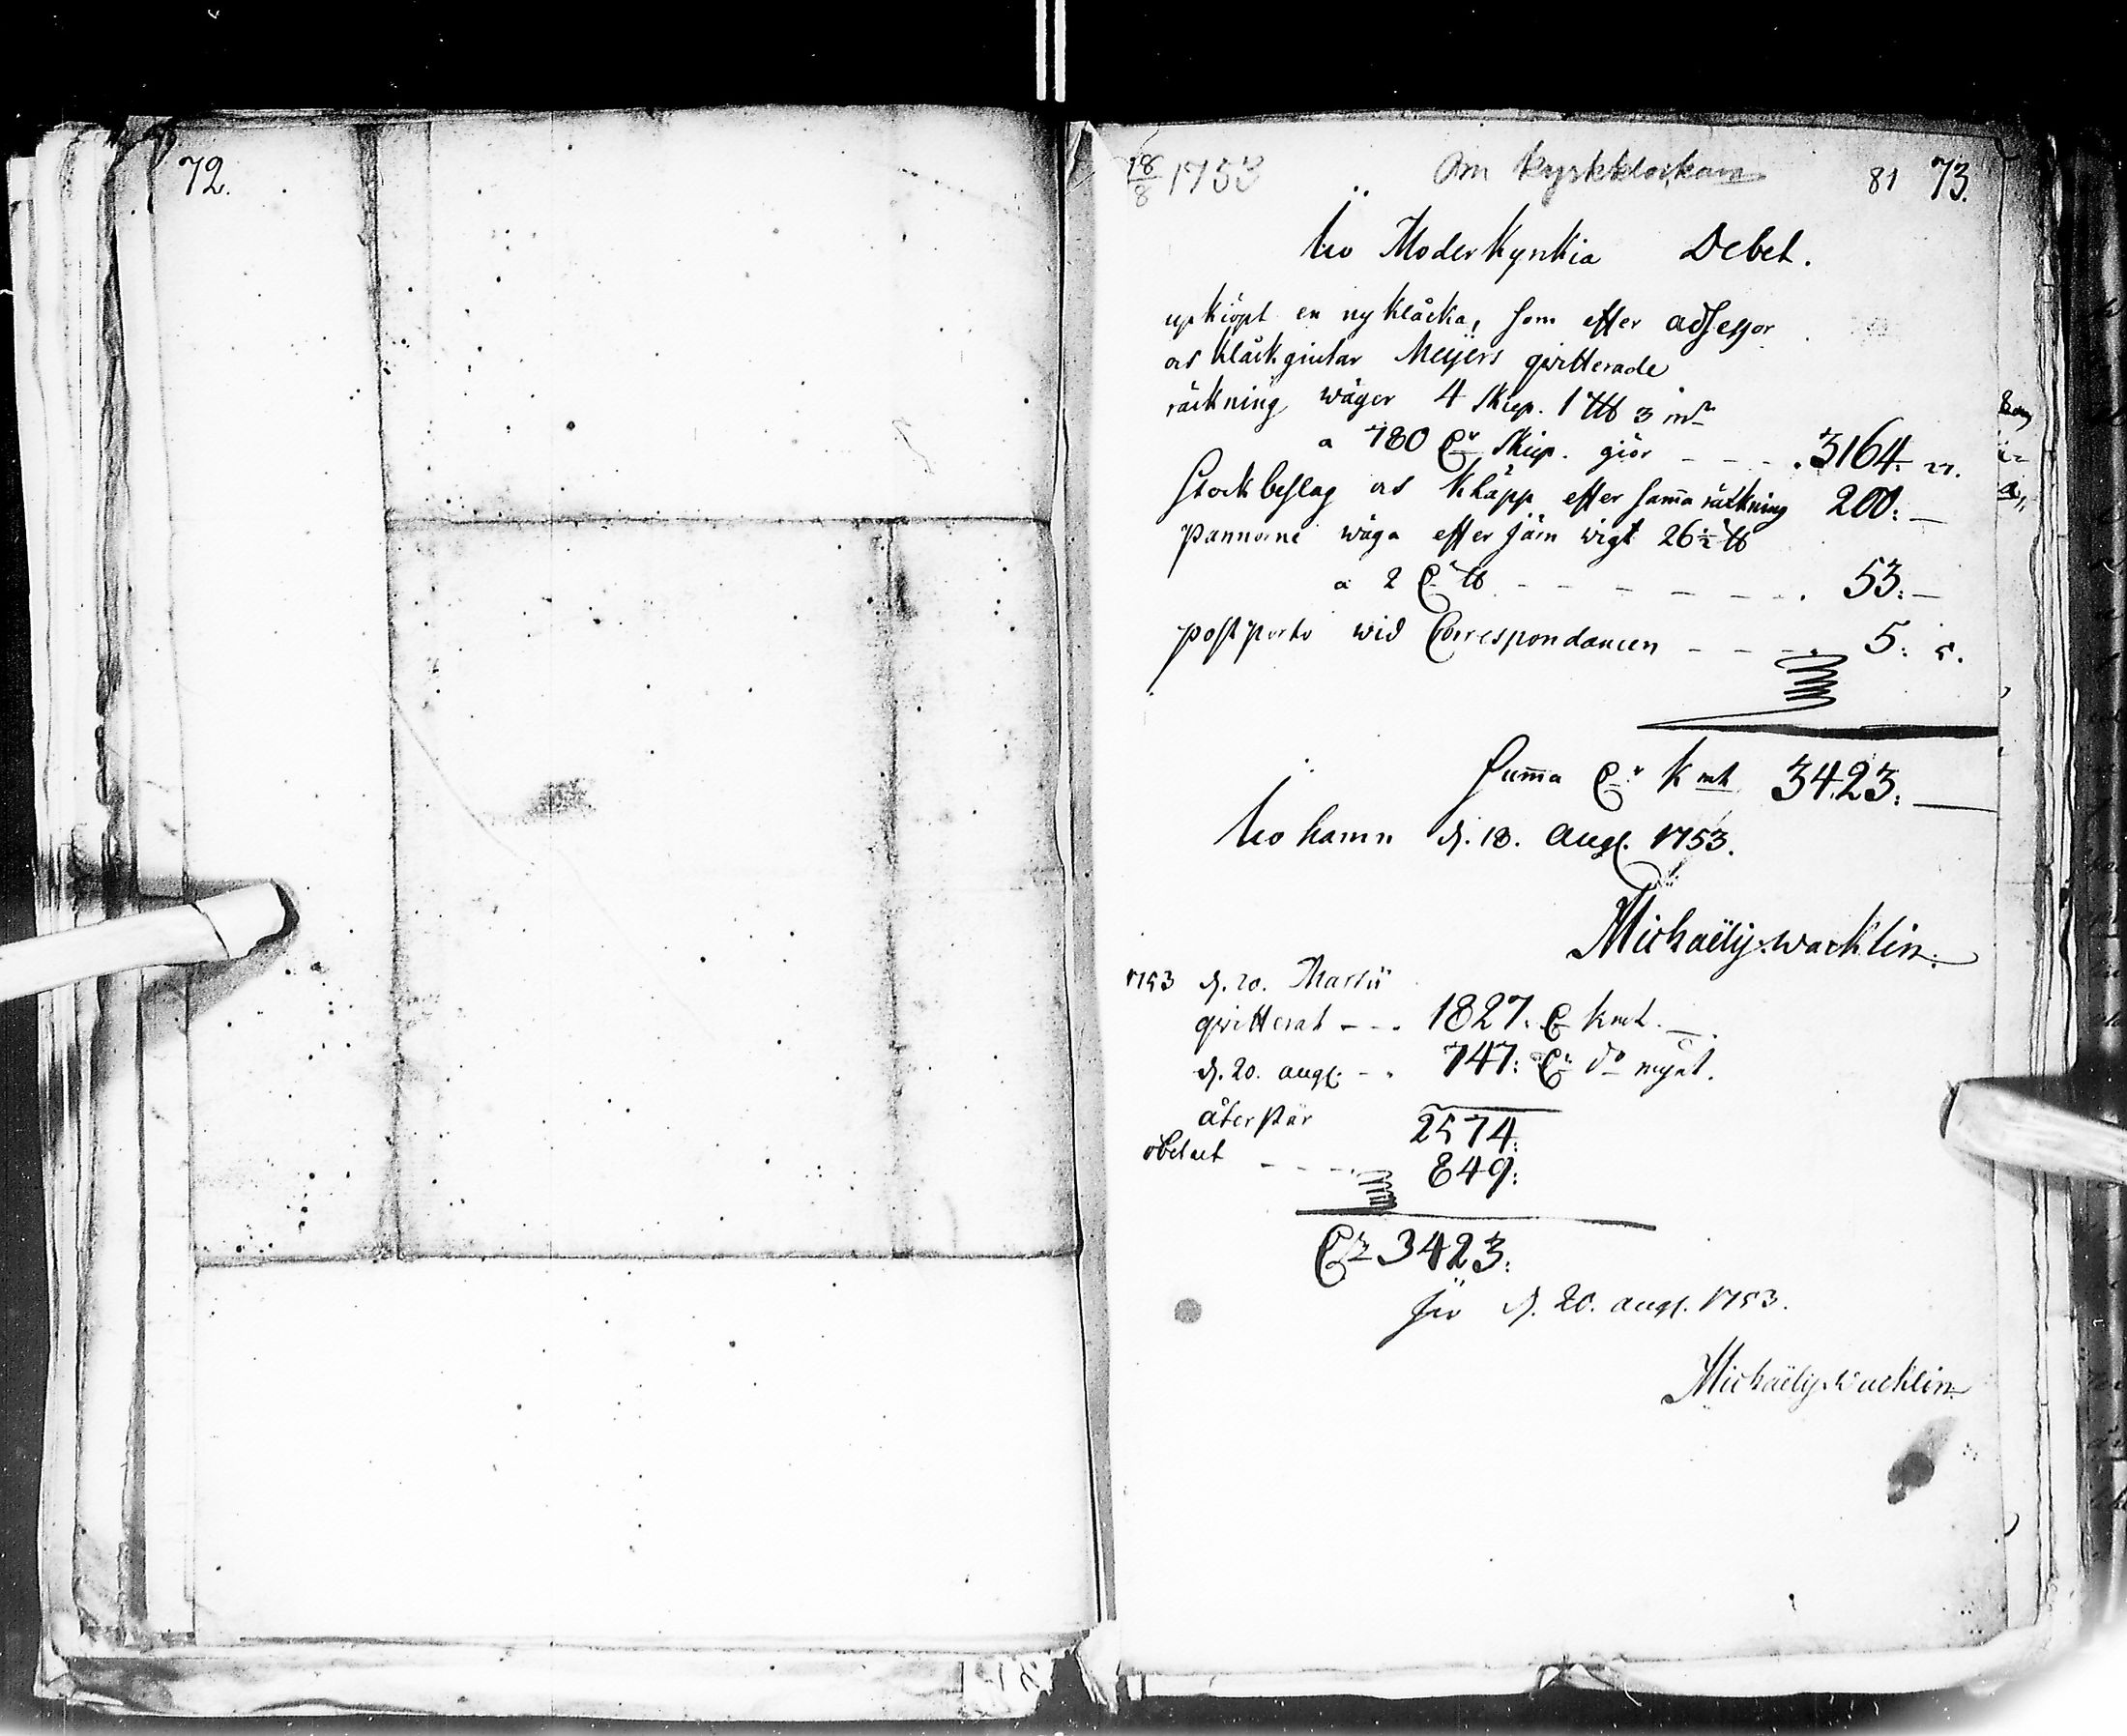 72.
18/8 1753 Om kyrkklockan 81 73.
Ijo Moderkyrkia Debet.
upkiöpt en ny klåcka, som efter adsessor
och klåckgiutar Meÿers qvitterade
räckning wäger 4 Skiep. 1 ℔ 3 m
a 780 Skiep. giör - - - 3164: 27.
Stockbeslag och kläpp efter samma räckning 200: —
Pannorne wäga efter järn wigt 26 ½ ℔
a 2 ℔ - - - - - - 53: —
postporto wid Correspondancen - - - 5: 5.
Summa Kmt 3423: —
Ijo hamn d. 18. Aug. 1753.
Michaël Wacklin.
1753 d. 20. Martii
qvitterat - - - 1827. kmt. —
d. 20. aug. - - 747: do mynt.
återstår 2574:
obetalt - - - - 849:
3423:
Ijo d. 20. aug. 1753.
Michaël Wacklin